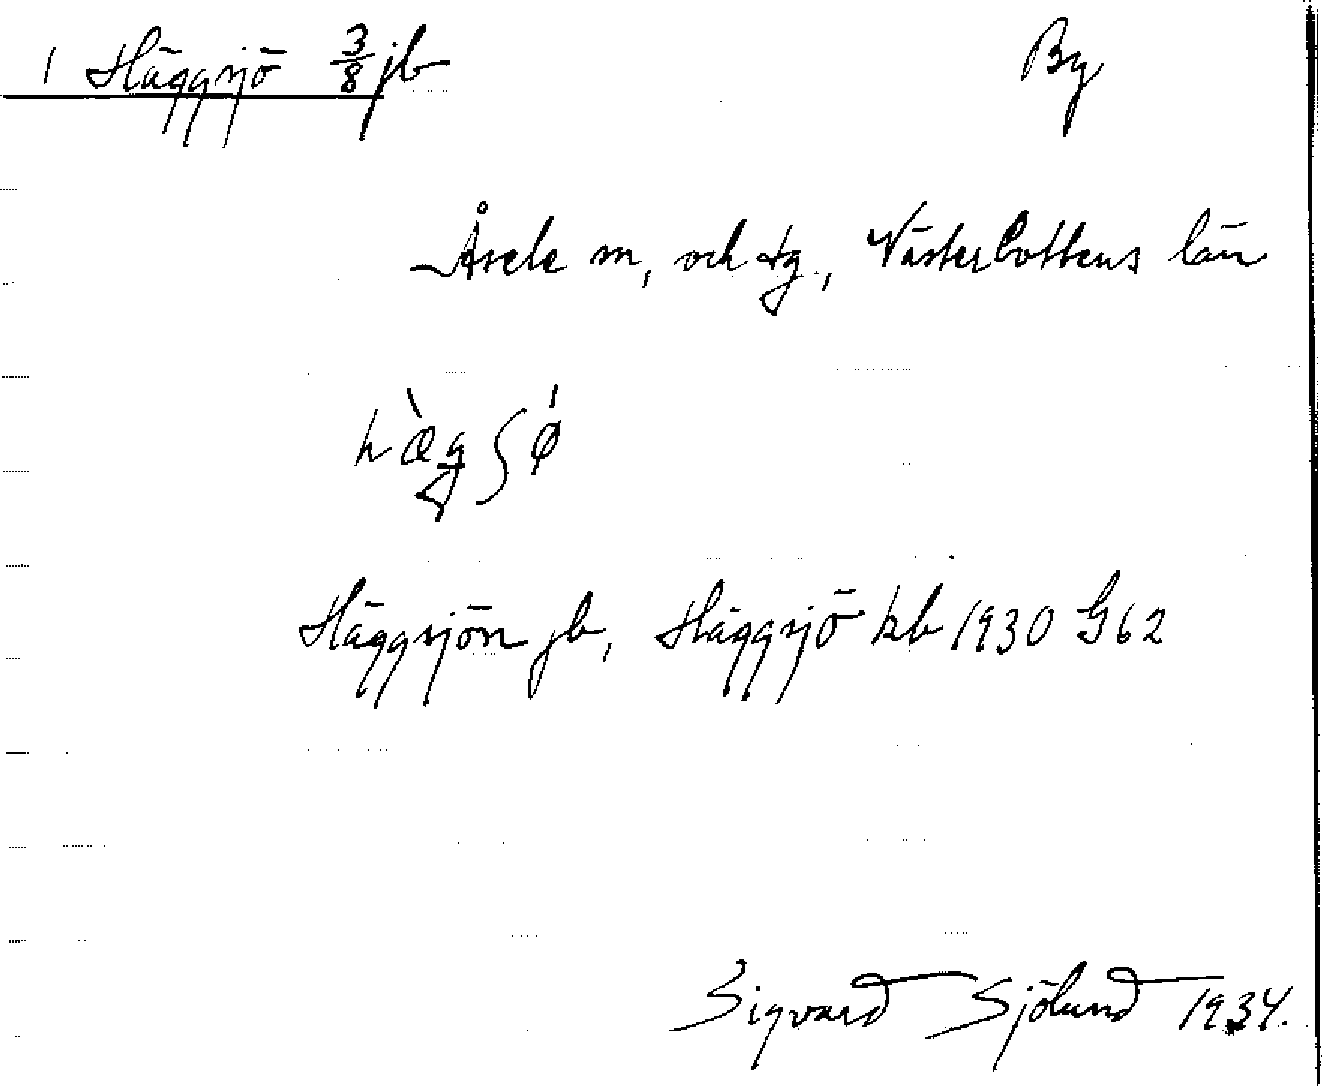 1 Häggsjö 3/8 jb By
Åsele sn, och tg., Västerbottens län
hæ̀gʃǿ
Häggsjön jb, Häggsjö kb 1930 G62
Sigvard Sjölund 1934.